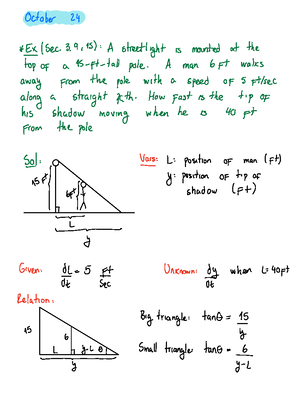 October 24
*Ex (Sec. 3.9, 15): A streetlight is mounted at the
top of a 15-ft-tall pole. A man 6 ft walks
away from the pole with a speed of 5 ft/sec
along a straight path. How fast is the tip of
his shadow moving when he is 40 ft
from the pole
Sol:
Vars: L: position of man (ft)
y: position of tip of
shadow (ft)
15 ft
6 ft
L
y
Given: dL/dt = 5 ft/sec
Unknown: dy/dt when L=40ft
Relation:
15
6
L
y-L
θ
y
Big triangle: tanθ = 15/y
Small triangle: tanθ = 6/y-L